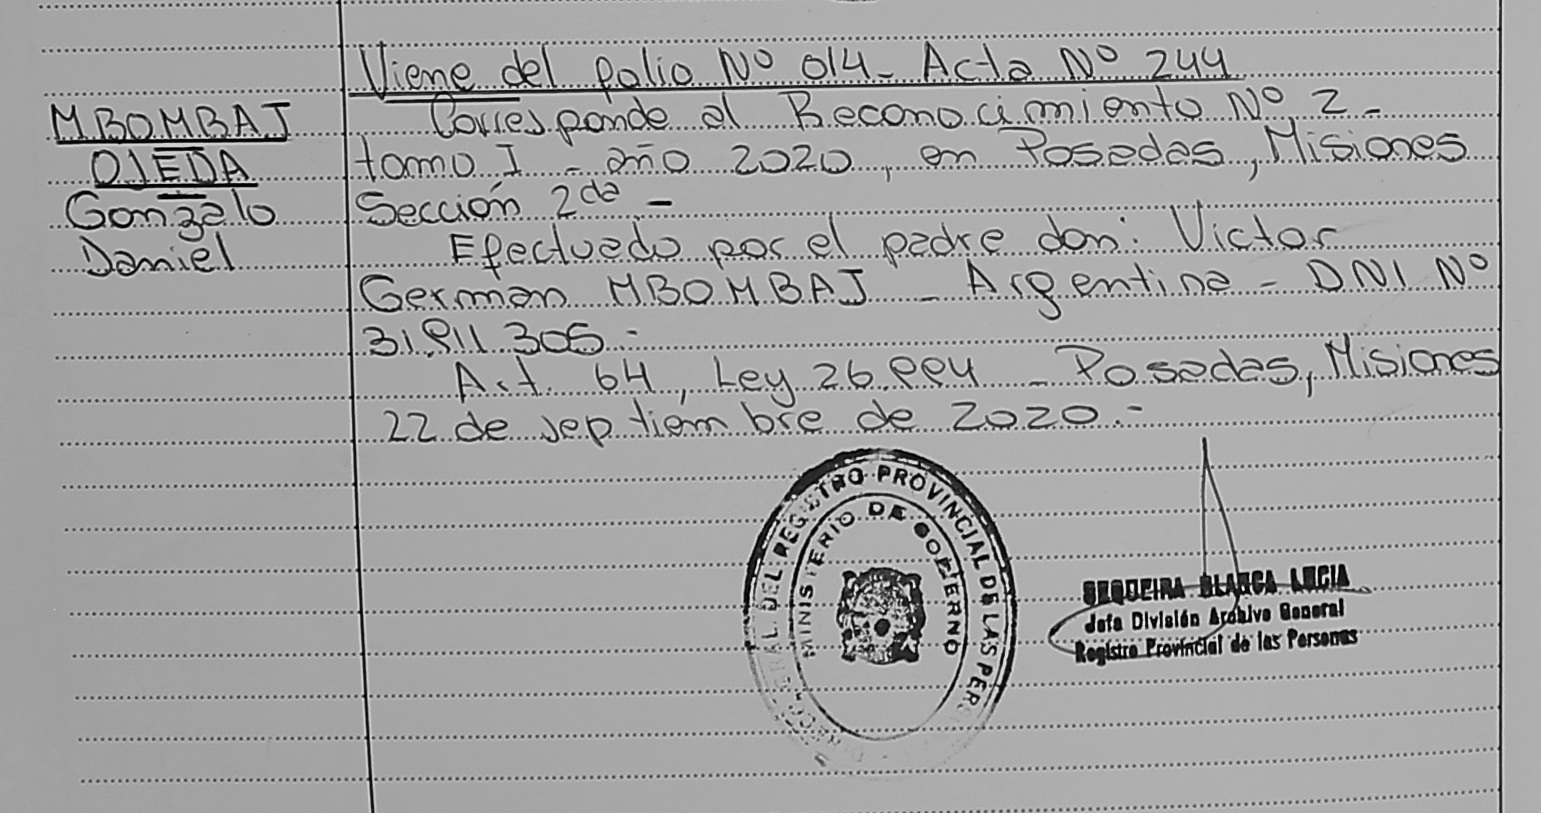 Viene del folio Nº 014 - Acta Nº 244
MBOMBAJ
OJEDA
Gonzalo
Daniel
Corresponde al Reconocimiento Nº 2 -
tomo I - año 2020, en Posadas, Misiones
Sección 2da -
Efectuado por el padre don: Victor
German MBOMBAJ - Argentina - DNI Nº
31.911.305.-
Art. 64, Ley 26.994 - Posadas, Misiones
22 de septiembre de 2020.-
DEL REGISTRO PROVINCIAL DE LAS PER
MINISTERIO DE GOBIERNO
SEQUEIRA BLANCA LUCIA
Jefa División Archivo General
Registro Provincial de las Personas